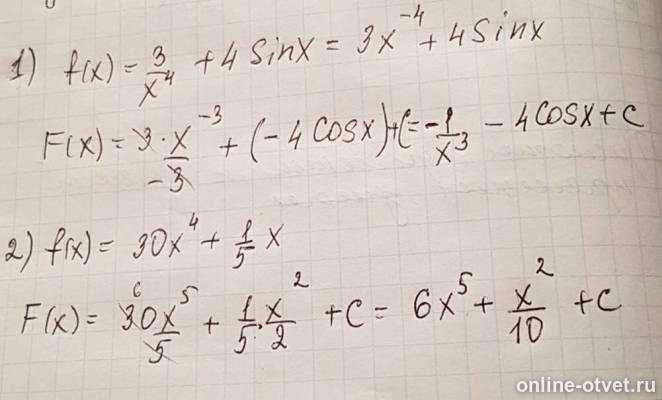 1) f(x) = 3/x⁴ + 4 Sinx = 3x⁻⁴ + 4 Sinx
F(x) = 3·x⁻³/-3 + (-4 cosx)+C = -1/x³ - 4cosx + C
2) f(x) = 30x⁴ + 1/5 x
F(x) = 30 6 x⁵/5 + 1/5·x²/2 + C = 6x⁵ + x²/10 + C
online-otvet.ru